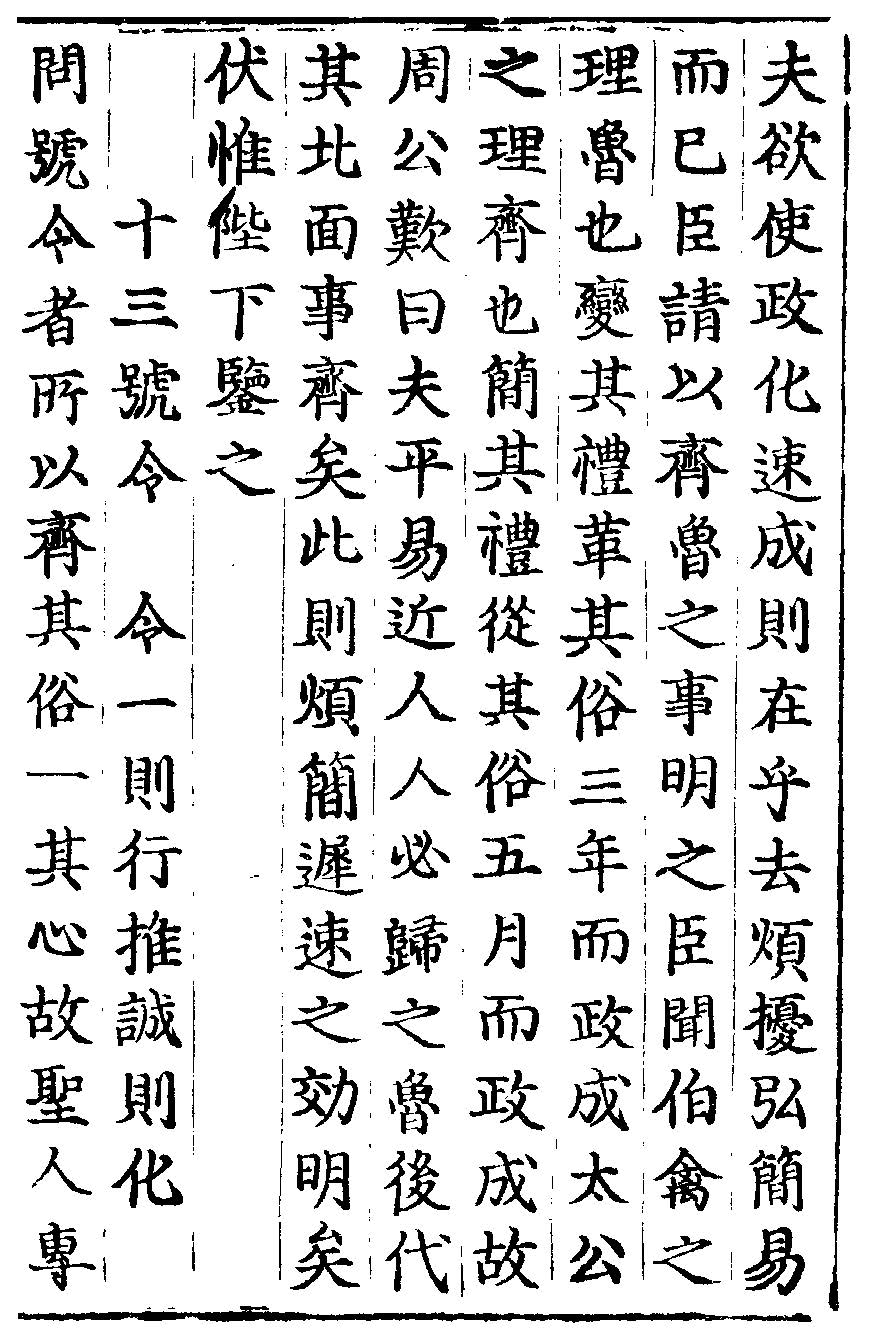 夫欲使政化速成則在乎去煩擾弘簡易
而已臣請以齊魯之事明之臣聞伯禽之
理魯也變其禮革其俗三年而政成太公
之理齊也簡其禮從其俗五月而政成故
周公歎曰夫平易近人人必歸之魯後代
其北面事齊矣此則煩簡遲速之効明矣
伏惟陛下鑒之
十三號令　令一則行推誠則化
問號令者所以齊其俗一其心故聖人專